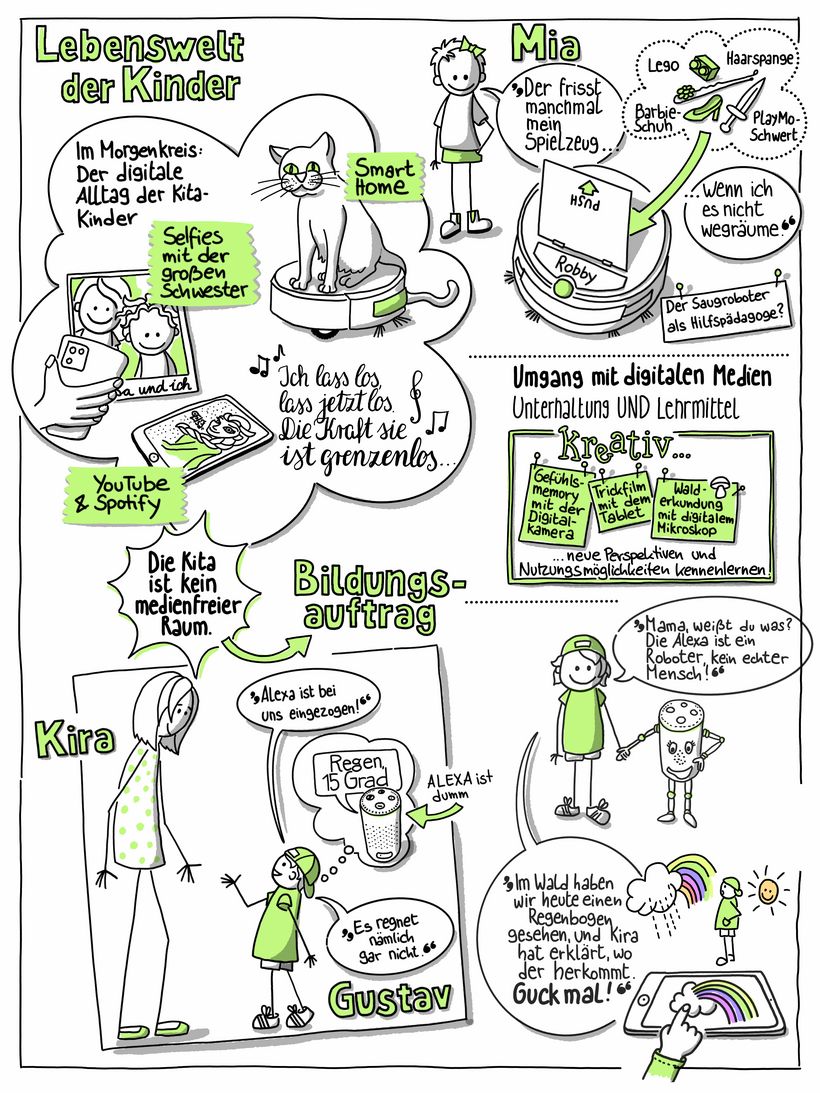 Lebenswelt
der Kinder
Im Morgenkreis:
Der digitale
Alltag der Kita-
Kinder
Smart
Home
Selfies
mit der
großen
Schwester
sa und ich
Ich lass los,
lass jetzt los.
Die Kraft sie
ist grenzenlos...
YouTube
& Spotify
Mia
„Der frisst
manchmal
mein
Spielzeug...
Lego
Haarspange
Barbie-
Schuh
PlayMo-
Schwert
...Wenn ich
es nicht
wegräume.“
PUSH
Robby
Der Saugroboter
als Hilfspädagoge?
Umgang mit digitalen Medien
Unterhaltung UND Lehrmittel
Kreativ...
Gefühls-
memory
mit der
Digital-
kamera
Trickfilm
mit dem
Tablet
Wald-
erkundung
mit digitalem
Mikroskop
...neue Perspektiven und
Nutzungsmöglichkeiten kennenlernen!
Die Kita
ist kein
medienfreier
Raum.
Bildungs-
auftrag
Kira
„Alexa ist bei
uns eingezogen!“
Regen,
15 Grad
ALEXA ist
dumm
„Es regnet
nämlich
gar nicht.“
Gustav
„Mama, weißt du was?
Die Alexa ist ein
Roboter, kein echter
Mensch!“
„Im Wald haben
wir heute einen
Regenbogen
gesehen, und Kira
hat erklärt, wo
der herkommt.
Guck mal!“